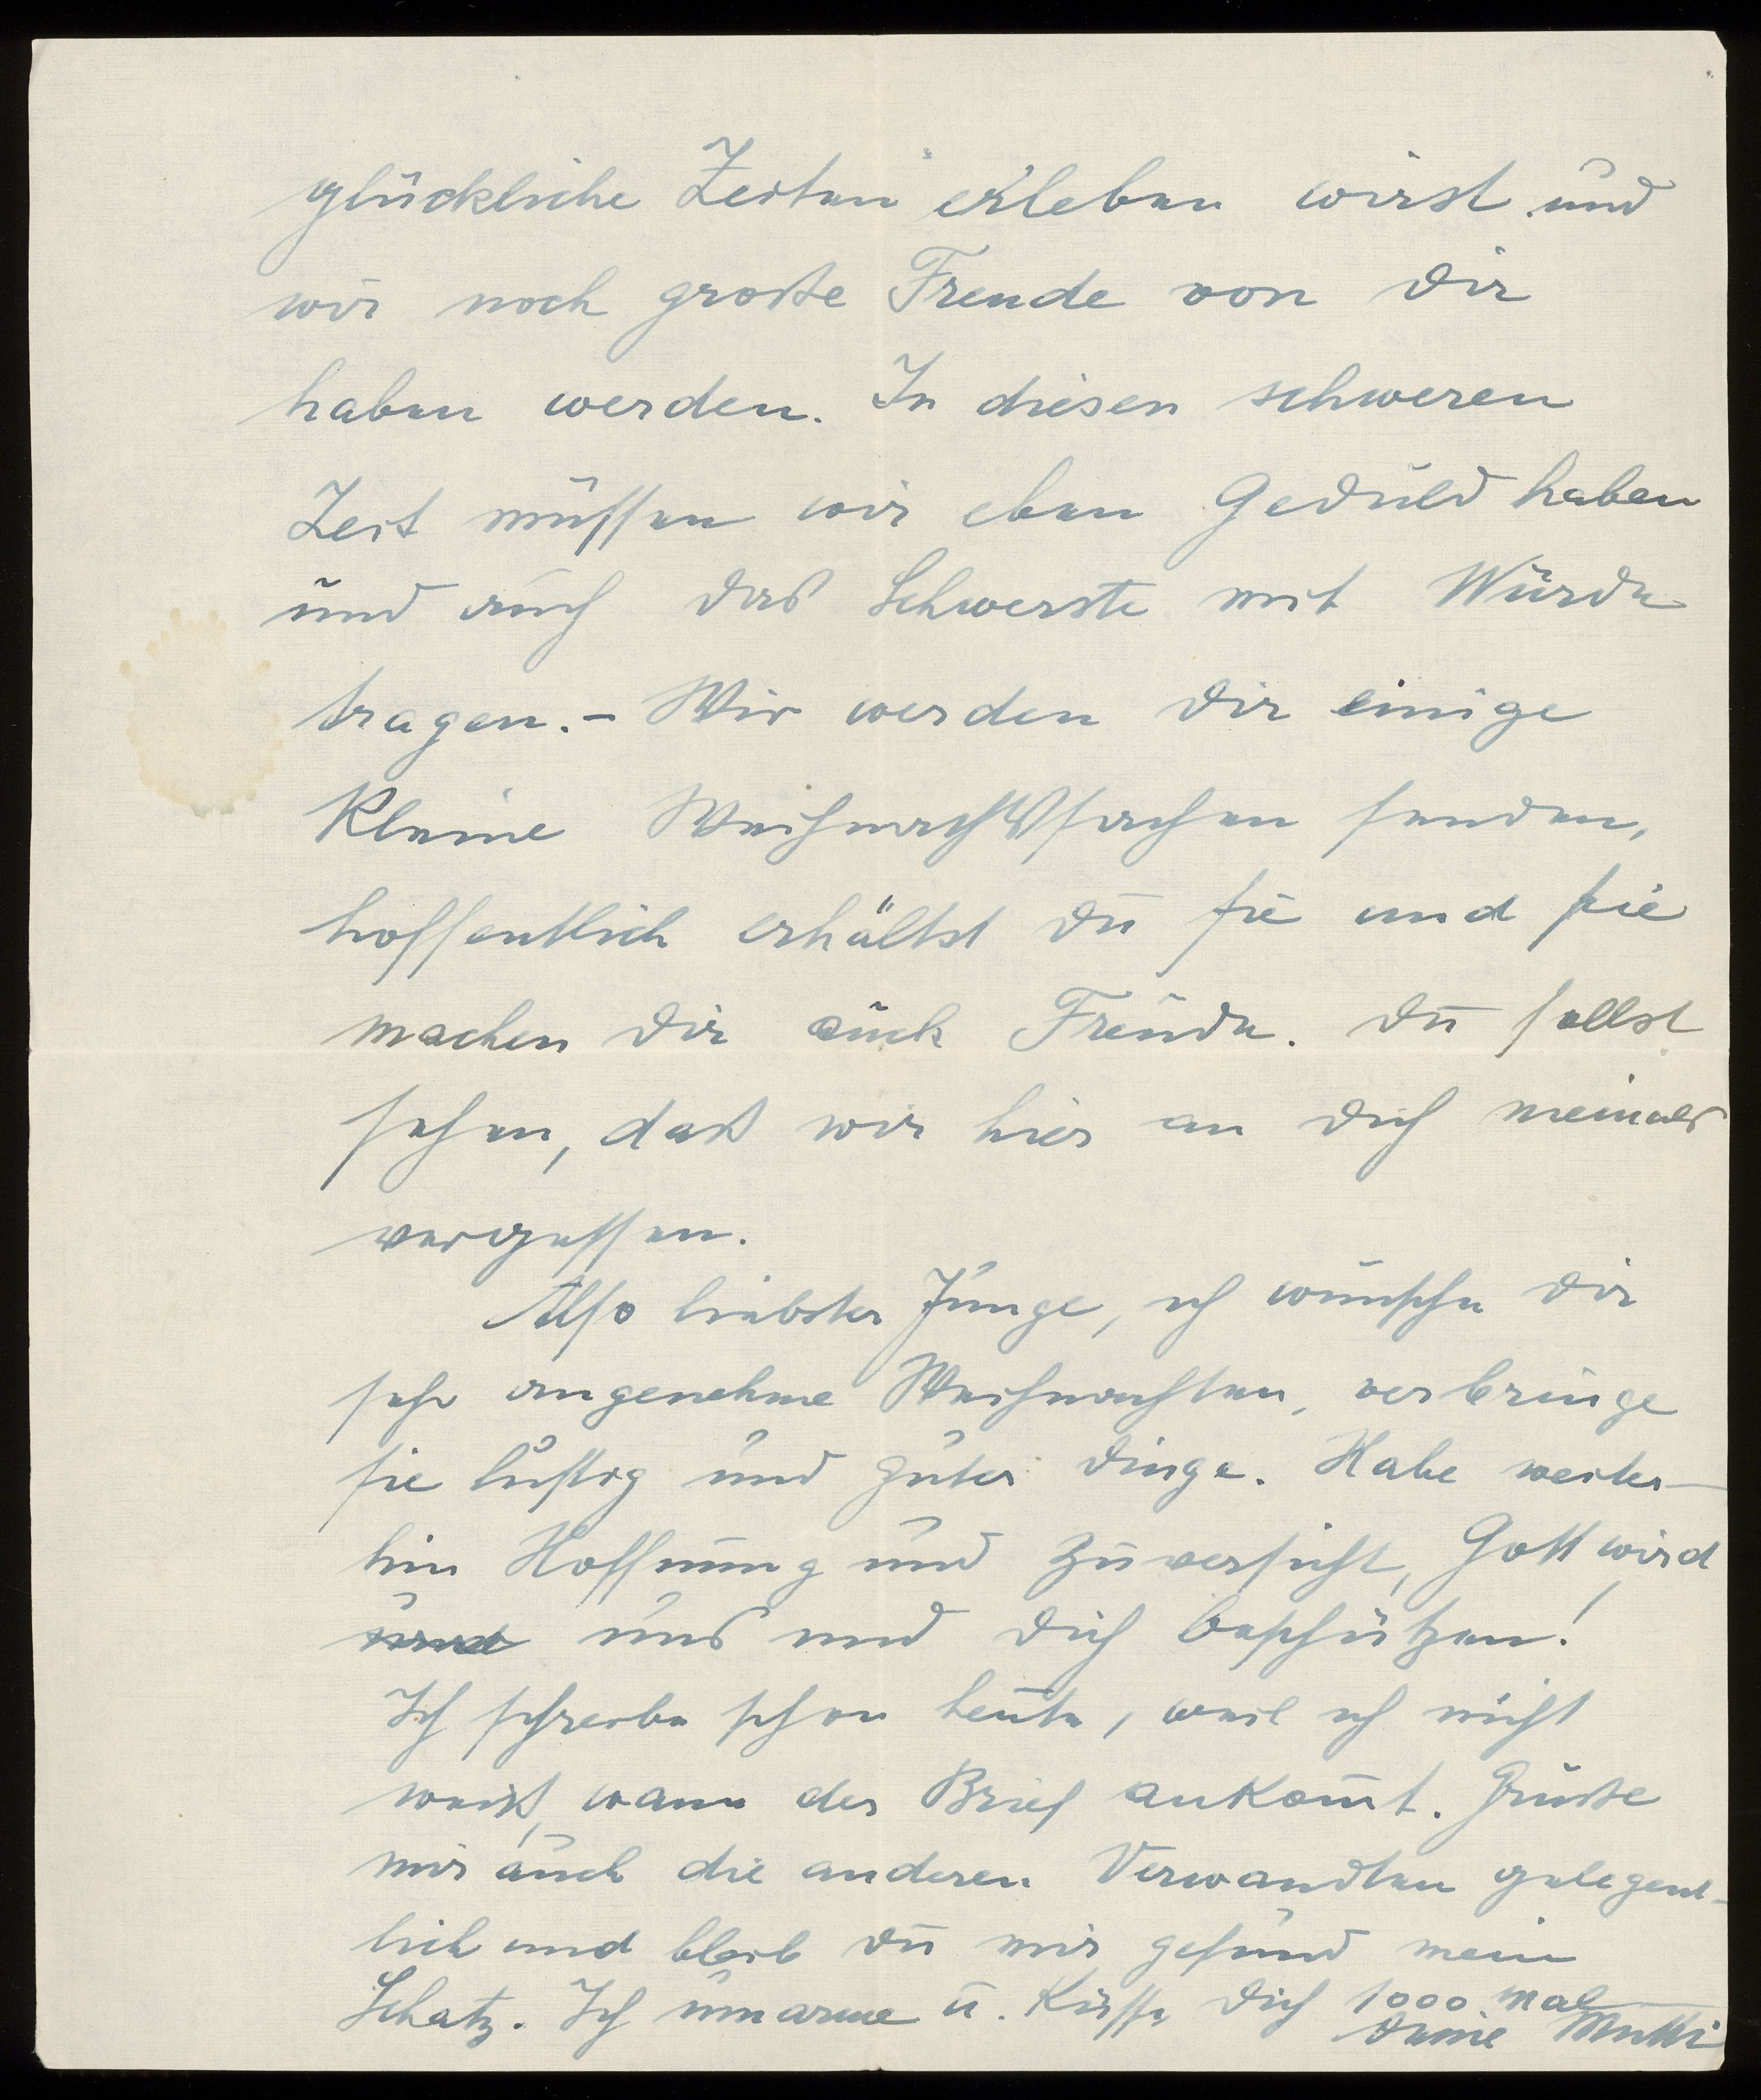 glückliche Zeiten erleben wirst und
wir noch große Freude von Dir
haben werden. In diesen schweren
Zeit müssen wir eben Geduld haben
und auch das Schwerste mit Würde
tragen. – Wir werden Dir einige
kleine Weihnachtssachen senden,
hoffentlich erhältst Du sie und sie
machen Dir auch Freude. Du sollst
sehen, daß wir hier an Dich niemals
vergessen.
Also liebster Junge, ich wünsche Dir
sehr angenehme Weihnachten, verbringe
sie lustig und guter Dinge. Habe weiter-
hin Hoffnung und Zuversicht, Gott wird
und uns und Dich beschützen!
Ich schreibe schon heute, weil ich nicht
weiß, wann der Brief ankom̅t. Grüße
mir auch die anderen Verwandten gelegent-
lich und bleib Du mir gesund mein
Schatz. Ich umarme u. küsse Dich 1000 mal
Deine Mutti